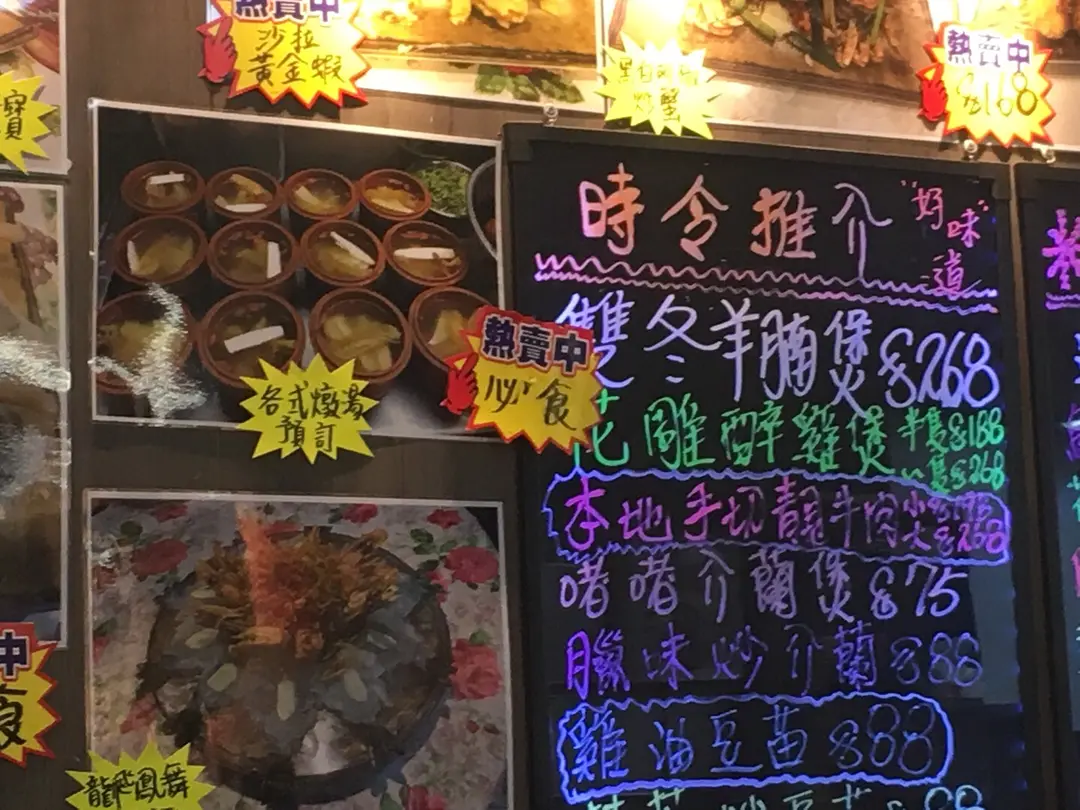 熱賣中
沙拉
黃金蝦
炒蟹
熱賣中
$168
寶
時令推介
"好味"
道
雙冬羊腩煲$268
花雕醉雞煲半隻$188
一隻$268
本地手切靚牛肉小$175
大$260
啫啫介蘭煲$75
臘味炒介蘭$88
雞油豆苗$88
炒豆苗$88
熱賣中
必食
各式燉湯
預訂
中
食
龍飛鳳舞